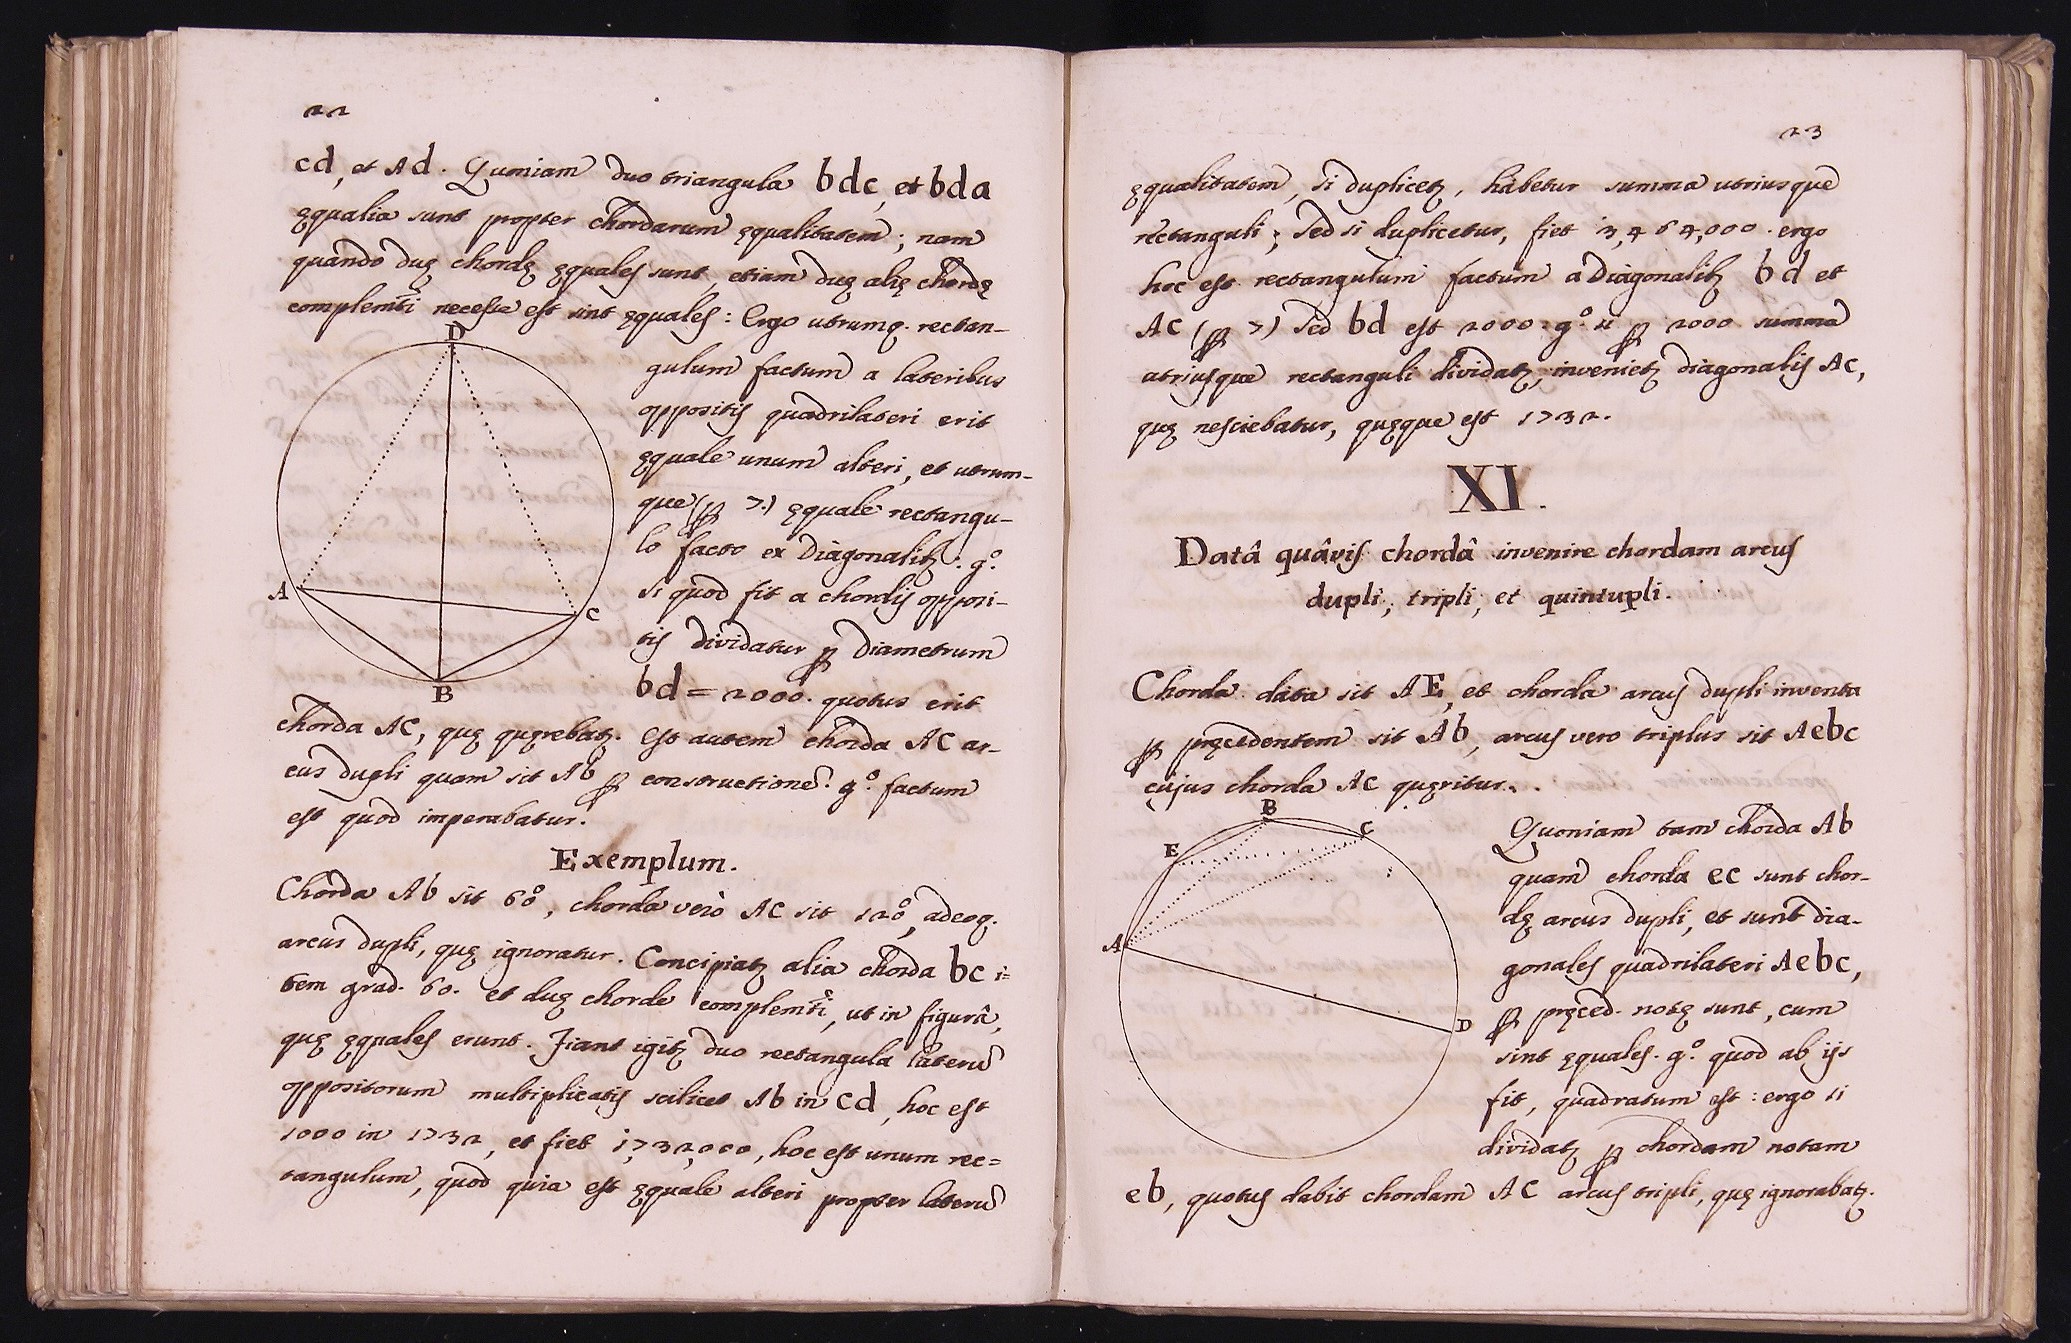 22
cd, et Ad. Quoniam duo triangula bdc, et bda
ęqualia sunt propter chordarum ęqualitatem; nam
quando duę chordę ęquales sunt, etiam duę alię chordę
complemti necesse est sint ęquales: Ergo utrumq. rectan-
D
gulum factum a lateribus
oppositis quadrilateri erit
ęquale unum alteri, et utrum-
que (ꝑ 7.) ęquale rectangu-
lo facto ex Diagonalibꝫ. gº.
si quod fit a chordis opposi-
tis dividatur ꝑ Diametrum
bd = 2000. quotus erit
A
C
B
chorda AC, quę quęrebatꝫ. Est autem chorda AC ar-
cus dupli quam sit Ab ꝑ constructione. gº. factum
est quod imperabatur.
Exemplum.
Chorda Ab sit 60, chorda verò AC sit 120, adeoq.
arcus dupli, quę ignoratur. Concipiatꝫ alia chorda bc i=
tem grad. 60. et duę chorde complemti, ut in figurâ,
quę ęquales erunt. Fiant igitꝫ duo rectangula laterũ
oppositorum multiplicatis scilicet Ab in cd, hoc est
1000 in 1732, et fiet 1,732,000, hoc est unum rec=
tangulum, quod quia est ęquale alteri propter laterũ
23
ęqualitatem, si duplicetꝫ, habetur summa utriusque
rectanguli; Sed si duplicetur, fiet 3,464,000. ergo
hoc est rectangulum factum a Diagonalibꝫ bd et
AC (ꝑ 7) sed bd est 2000: gº. si ꝑ 2000 summa
utriusque rectanguli dividatꝫ, invenietꝫ diagonalis AC,
quę nesciebatur, quęque est 1732.
XI.
Datâ quâvis chordâ invenire chordam arcus
dupli, tripli, et quintupli.
Chorda data sit AE, et chorda arcus dupli inventa
ꝑ pręcedentem sit Ab, arcus vero triplus sit Aebc
cujus chorda AC quęritur.
B
C
E
A
D
Quoniam tam chorda Ab
quam chorda ec sunt chor-
dę arcus dupli, et sunt dia-
gonales quadrilateri Aebc,
ꝑ pręced. notę sunt, cum
sint ęquales. gº. quod ab ijs
fit, quadratum est: ergo si
dividatꝫ ꝑ chordam notam
eb, quotus dabit chordam AC arcus tripli, quę ignorabatꝫ.